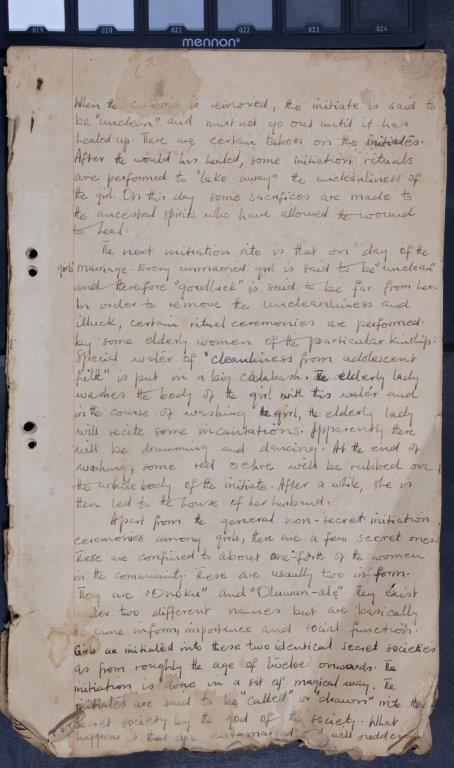 019 020 021 022 023 024
mennon®
(3)
When the is removed, the initiate is said to
be "unclean" and must not go out until it has
healed up. There are certain taboos on the initiates.
After the would has healed, some initiation rituals
are performed to "take away" the uncleanliness of
the girl. On this day some sacrifices are made to
the ancestral spirits who have allowed the wound
to heal.
The next initiation rite is that on the day of the
girls marriage. Every unmarried girl is said to be "unclean"
and therefore "goodluck" is said to be far from her.
In order to remove the uncleanliness and
illuck, certain ritual ceremonies are performed
by some elderly women of the particular kinship.
Special water of "cleanliness from adolescent
filth" is put in a big calabash. The elderly lady
washes the body of the girl with this water and
in the course of washing the girl, the elderly lady
will recite some incantations. Apparently there
will be drumming and dancing. At the end of
washing, some red ochre will be rubbed on
the whole body of the initiate. After a while, she is
then led to the house of her husband.
Apart from the general non-secret initiation
ceremonies among girls, there are a few secret ones.
These are confined to about one- of the women
in the community. These are usually two in form.
They are "Onoku" and "Oluwun-ale". They exist
under two different names but are basically
the same in form, importance and social function.
Girls are initiated into these two identical secret societies
as from roughly the age of twelve onwards. The
initiation is done in a sort of magical way. The
initiates are said to be "called" or "drawn" into the
secret society by the god of the society. What
happens is that earmarked will suddenly